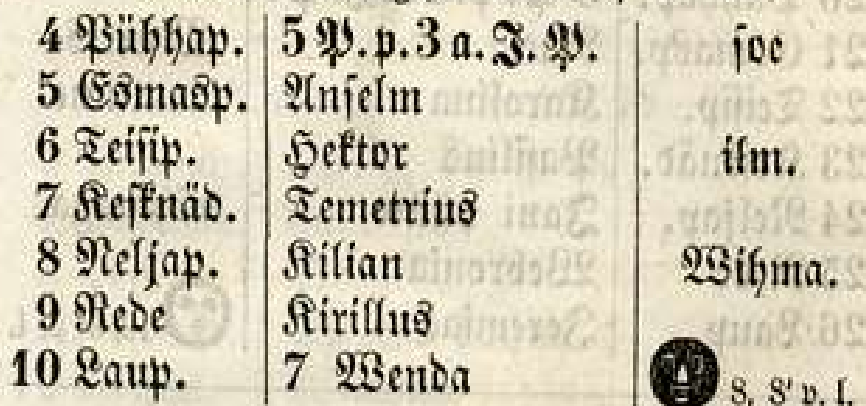 4 Pühhap. 5 P. p. 3 a. J. P. soe
5 Esmasp. Anselm
6 Teisip. Hektor ilm.
7 Kesknäd. Temetrius
8 Neljap. Kilian Wihma.
9 Rede Kirillus
10 Laup. 7 Wenda 8. S' p. l.